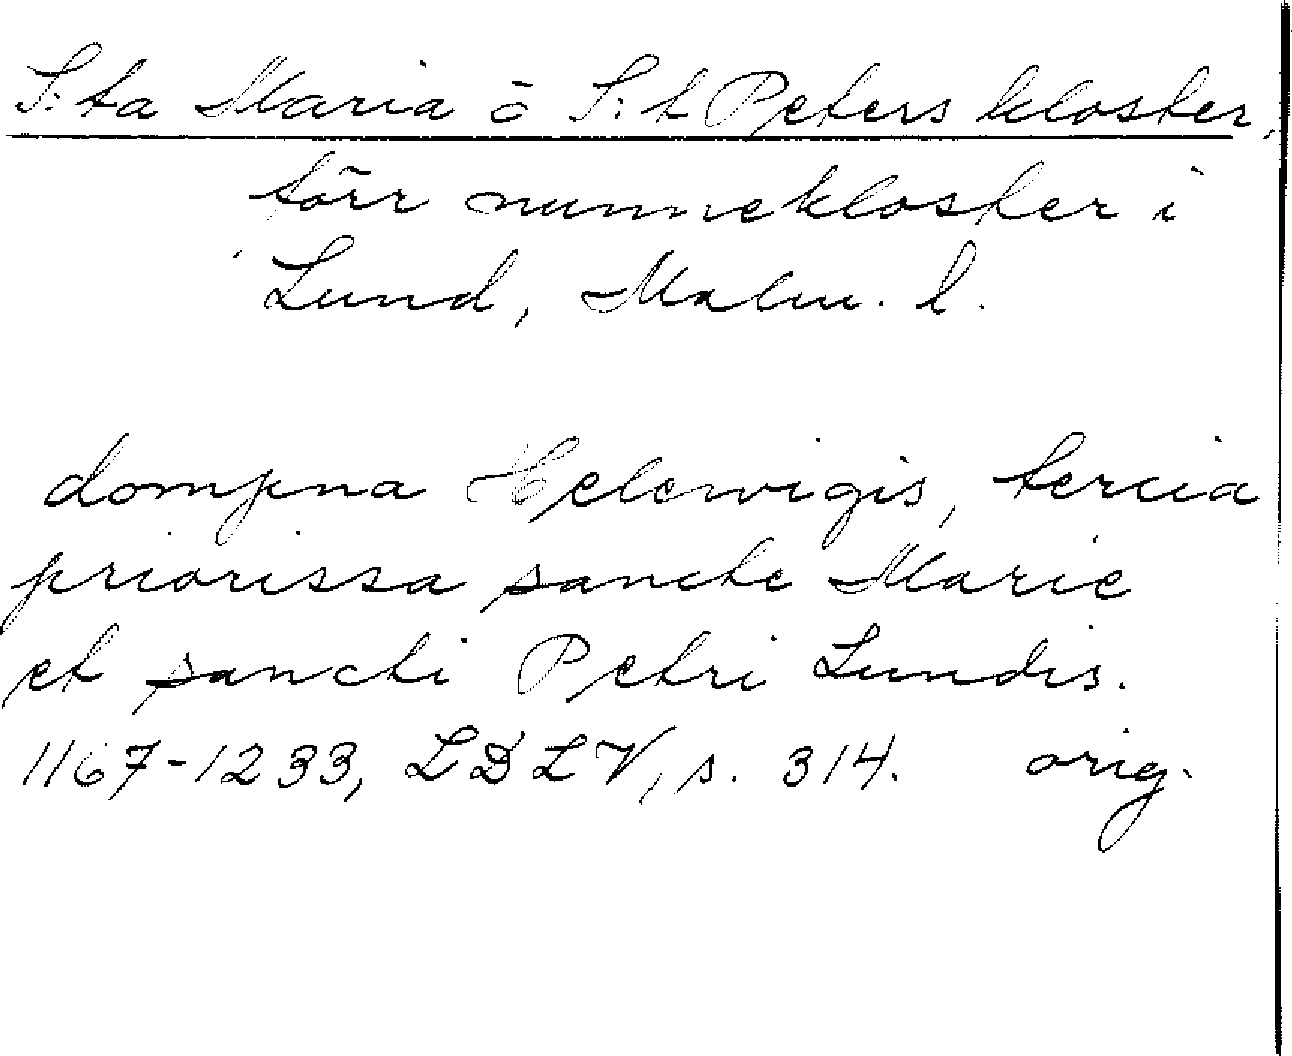 S:ta Maria o S:t Peters kloster,
förr nunnekloster i
Lund, Malm. l.
dompna Helewigis, tercia
priorissa sancte Marie
et sancti Petri Lundis.
1167-1233, LDLV, s. 314. orig.